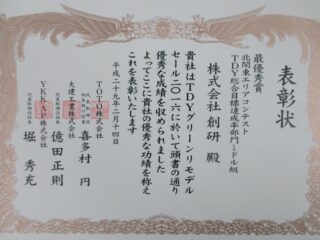 表彰状
最優秀賞
北関東エリアコンテスト
TDY総合目標達成率部門ミドル級
株式会社 創研 殿
貴社はTDYグリーンリモデル
セール二〇一六に於いて頭書の通り
優秀な成績を収められました
よってここに貴社の優秀な功績を称え
これを表彰いたします
平成二十九年二月十四日
TOTO株式会社
代表取締役 社長執行役員 喜多村 円
大建工業株式会社
代表取締役社長 億田正則
YKK AP株式会社
代表取締役社長 堀 秀充